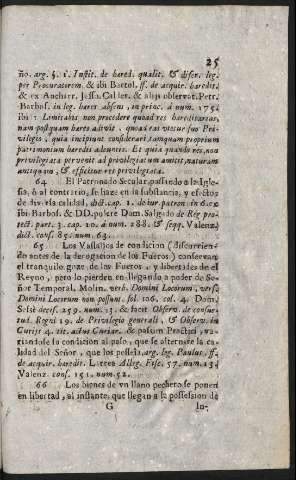 25
ño. arg. §. 1. Instit. de hæred. qualit. & differ. leg.
per Procuratorem, & ibi Bartol. ff. de acquir. hæredit.
& ex Ancharr. Jess. Callet. & alijs observat. Petr.
Barbos. in leg. hæres absens, in princ. à num. 175.
ibi: Limitabis, non procedere quoad res hæreditarias,
nam postquam hæres adivit, quoad eas utetur suo Pri-
vilegio, quia incipiunt considerari tamquam proprium
patrimonium hæredis adeuntis. Et quia quando res, non
privilegiata pervenit ad privilegiatum amittit, naturam
antiquam, & efficitur res privilegiata.
64 El Patronado Secular, passando à la Igle-
sia, ò al contrario, se haze en la substancia, y efectos
de diversa calidad, dict. cap. 1. de iur. patron. in 6. ex
ibi Barbos. & DD. pulcre Dom. Salgado de Reg. pro-
tect. part. 3. cap. 10. à num. 288. & seqq. Valenz.
dict. cons. 85. num. 63.
65 Los Vassallos de condicion (discurrien-
do antes de la derogacion de los Fueros) conservan
el tranquilo goze de los Fueros, y libertades de el
Reyno, pero lo pierden en llegando à poder de Se-
ñor Temporal, Molin. verb. Domini Locorum, vers.
Domini Locorum non possunt, fol. 106. col. 4. Dom.
Sessè decis. 259. num. 13. & facit Observ. de consue-
tut. Regni 19. de Privilegio generali, & Observ. in
Curijs 4. tit. actus Curiar. & passim Practici, va-
riandose la condicion al passo, que se alterase la ca-
lidad del Señor, que los posseia, arg. leg. Paulus ff.
de acquir. hæredit. Larrea Alleg. Fisc. 57. num. 13.
Valenz. cons. 151. num. 52.
66 Los bienes de un llano pechero se ponen
en libertad, al instante, que llegan à la possession de
G In-